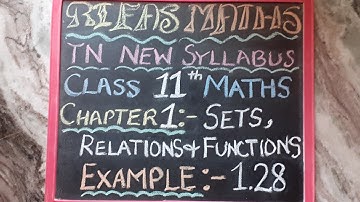 RIFAS MATHS
TN NEW SYLLABUS
CLASS 11th MATHS
CHAPTER 1:- SETS,
RELATIONS & FUNCTIONS
EXAMPLE:- 1.28